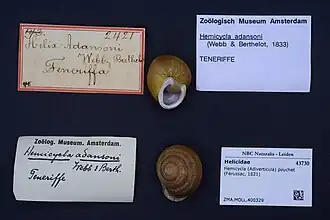 2421
Helix Adansoni
Webb. Berthel.
Teneriffa
Zoölogisch Museum Amsterdam
Hemicycla adansoni
(Webb & Berthelot, 1833)
TENERIFFE
Zoölog. Museum. Amsterdam.
Hemicycla adansoni
Webb & Berth.
Teneriffe
NBC Naturalis - Leiden
Helicidae 43730
Hemicycla (Adiverticula) pouchet
(Férussac, 1821)
ZMA.MOLL.400329